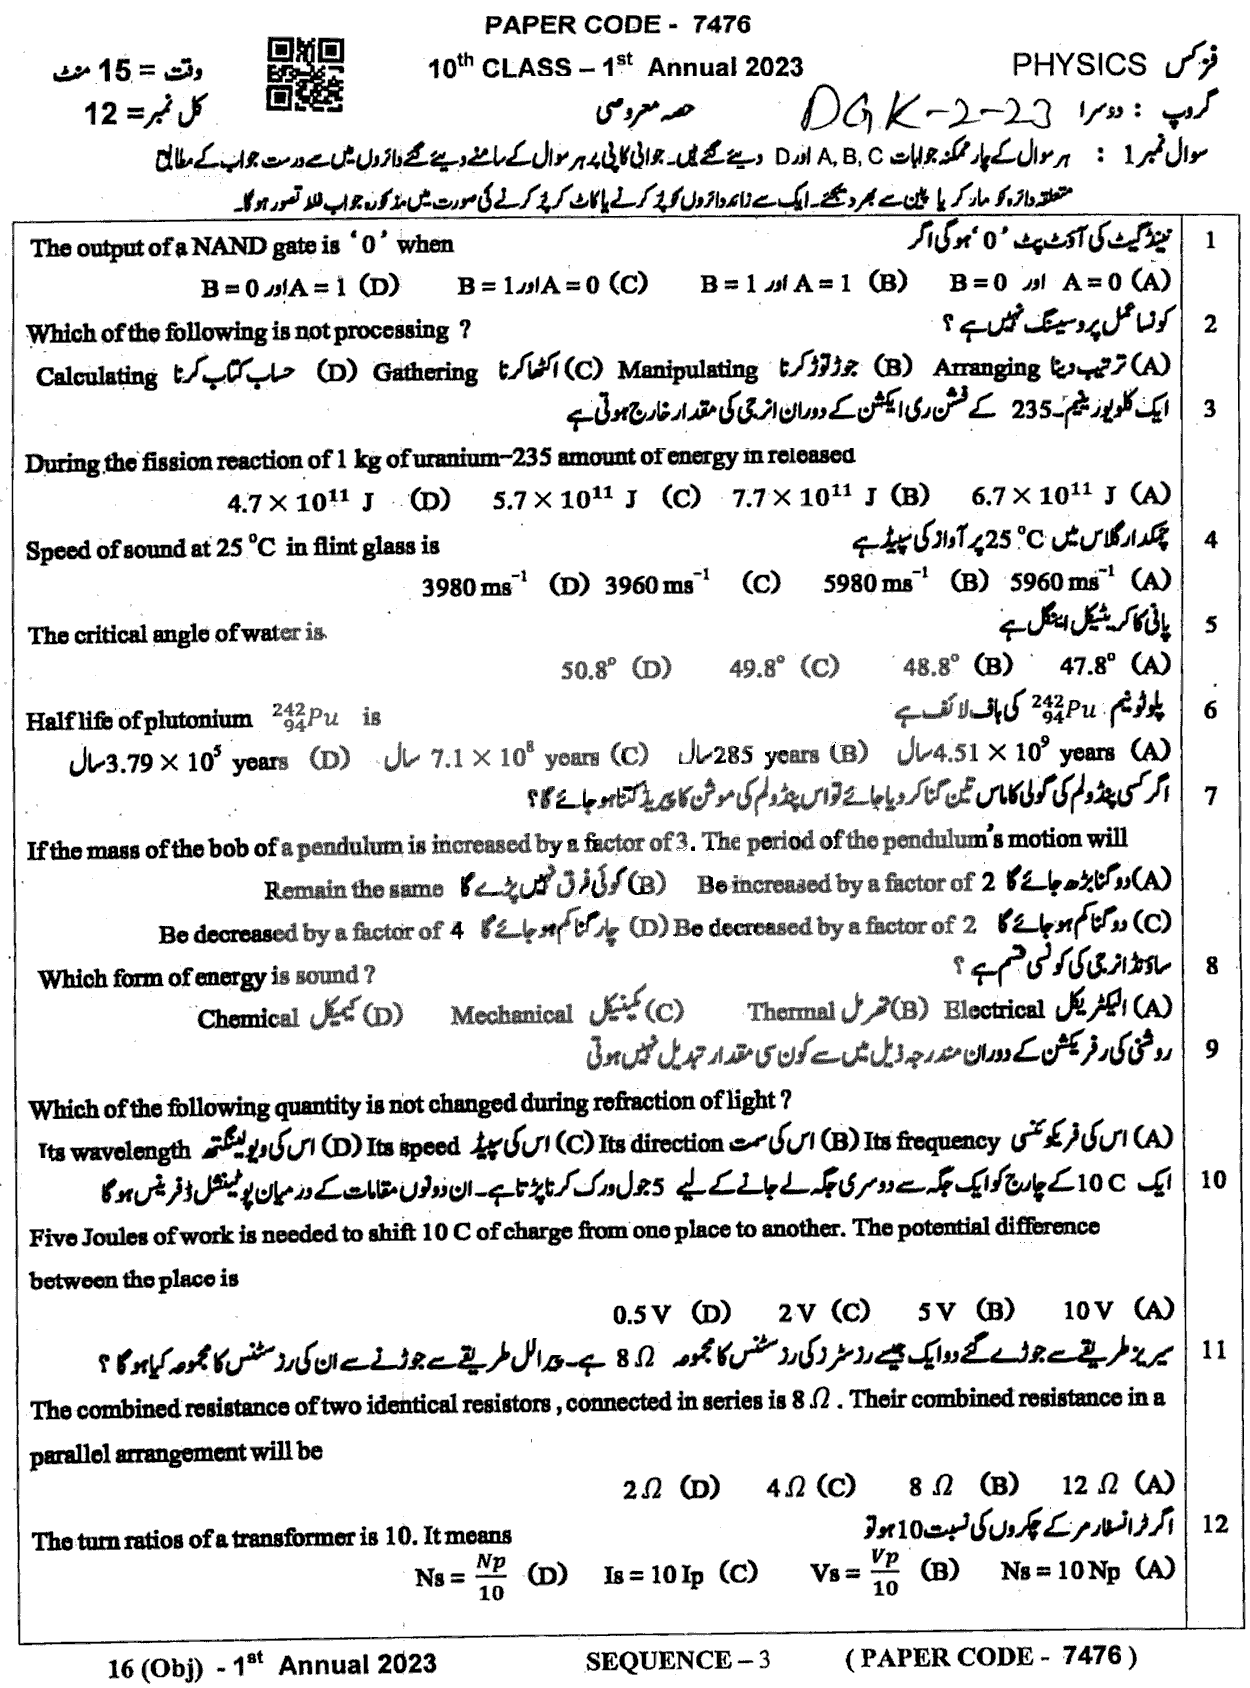 PAPER CODE - 7476
وقت = 15 منٹ 10th CLASS – 1st Annual 2023 PHYSICS فزکس
کل نمبر = 12 حصہ معروضی DGK-2-23 گروپ : دوسرا
سوال نمبر 1 : ہر سوال کے چار ممکنہ جوابات A, B, C اور D دیئے گئے ہیں۔ جوابی کاپی پر ہر سوال کے سامنے دیئے گئے دائروں میں سے درست جواب کے مطابق
متعلقہ دائرہ کو مارکر یا پین سے بھر دیجئے۔ ایک سے زائد دائروں کو پُر کرنے یا کاٹ کر پُر کرنے کی صورت میں مذکورہ جواب غلط تصور ہوگا۔
The output of a NAND gate is ‘0’ when نینڈ گیٹ کی آؤٹ پٹ ‘0’ ہوگی اگر 1
B = 0 اور A = 1 (D) B = 1 اور A = 0 (C) B = 1 اور A = 1 (B) B = 0 اور A = 0 (A)
Which of the following is not processing ? کونسا عمل پروسیسنگ نہیں ہے ؟ 2
Calculating حساب کتاب کرنا (D) Gathering اکٹھا کرنا (C) Manipulating جوڑ توڑ کرنا (B) Arranging ترتیب دینا (A)
ایک کلو یورینیم۔235 کے فشن ری ایکشن کے دوران انرجی کی مقدار خارج ہوتی ہے 3
During the fission reaction of 1 kg of uranium–235 amount of energy in released
4.7 × 10¹¹ J (D) 5.7 × 10¹¹ J (C) 7.7 × 10¹¹ J (B) 6.7 × 10¹¹ J (A)
Speed of sound at 25 °C in flint glass is چمکدار گلاس میں 25 °C پر آواز کی سپیڈ ہے 4
3980 ms⁻¹ (D) 3960 ms⁻¹ (C) 5980 ms⁻¹ (B) 5960 ms⁻¹ (A)
The critical angle of water is پانی کا کریٹیکل اینگل ہے 5
50.8° (D) 49.8° (C) 48.8° (B) 47.8° (A)
Half life of plutonium ²⁴²₉₄Pu is پلوٹونیم ²⁴²₉₄Pu کی ہاف لائف ہے 6
سال 3.79 × 10⁵ years (D) سال 7.1 × 10⁸ years (C) سال 285 years (B) سال 4.51 × 10⁹ years (A)
اگر کسی پنڈولم کی گولی کا ماس تین گنا کر دیا جائے تو اس پنڈولم کی موشن کا پیریڈ کتنا ہو جائے گا؟ 7
If the mass of the bob of a pendulum is increased by a factor of 3. The period of the pendulum's motion will
Remain the same کوئی فرق نہیں پڑے گا (B) Be increased by a factor of 2 دو گنا بڑھ جائے گا (A)
Be decreased by a factor of 4 چار گنا کم ہو جائے گا (D) Be decreased by a factor of 2 دو گنا کم ہو جائے گا (C)
Which form of energy is sound ? ساؤنڈ انرجی کی کونسی قسم ہے ؟ 8
Chemical کیمیکل (D) Mechanical مکینیکل (C) Thermal تھرمل (B) Electrical الیکٹریکل (A)
روشنی کی رفریکشن کے دوران مندرجہ ذیل میں سے کون سی مقدار تبدیل نہیں ہوتی 9
Which of the following quantity is not changed during refraction of light ?
Its wavelength اس کی ویولینگتھ (D) Its speed اس کی سپیڈ (C) Its direction اس کی سمت (B) Its frequency اس کی فریکوئنسی (A)
ایک 10 C کے چارج کو ایک جگہ سے دوسری جگہ لے جانے کے لیے 5 جول ورک کرنا پڑتا ہے۔ ان دونوں مقامات کے درمیان پوٹینشل ڈفرینس ہوگا 10
Five Joules of work is needed to shift 10 C of charge from one place to another. The potential difference
between the place is
0.5 V (D) 2 V (C) 5 V (B) 10 V (A)
سیریز طریقے سے جوڑے گئے دو ایک جیسے رزسٹرز کی رزسٹنس کا مجموعہ 8 Ω ہے۔ پیرالل طریقے سے جوڑنے سے ان کی رزسٹنس کا مجموعہ کیا ہوگا ؟ 11
The combined resistance of two identical resistors , connected in series is 8 Ω . Their combined resistance in a
parallel arrangement will be
2 Ω (D) 4 Ω (C) 8 Ω (B) 12 Ω (A)
The turn ratios of a transformer is 10. It means اگر ٹرانسفارمر کے چکروں کی نسبت 10 ہو تو 12
Ns = Np/10 (D) Is = 10 Ip (C) Vs = Vp/10 (B) Ns = 10 Np (A)
16 (Obj) - 1st Annual 2023 SEQUENCE – 3 ( PAPER CODE - 7476 )